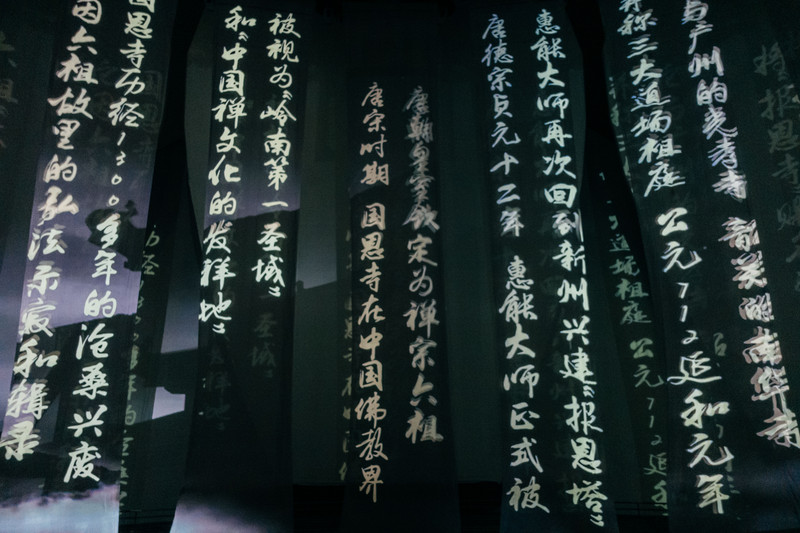 与广州的光孝寺 韶关的南华寺
并称三大道场祖庭 公元712延和元年
惠能大师再次回到新州兴建“报恩塔”
唐德宗贞元十二年 惠能大师正式被
唐朝皇室钦定为禅宗六祖
唐宋时期 国恩寺在中国佛教界
被视为“岭南第一圣域”
和“中国禅文化的发祥地”
国恩寺历经1300多年的沧桑兴废
因六祖故里的弘法示寂和辑录